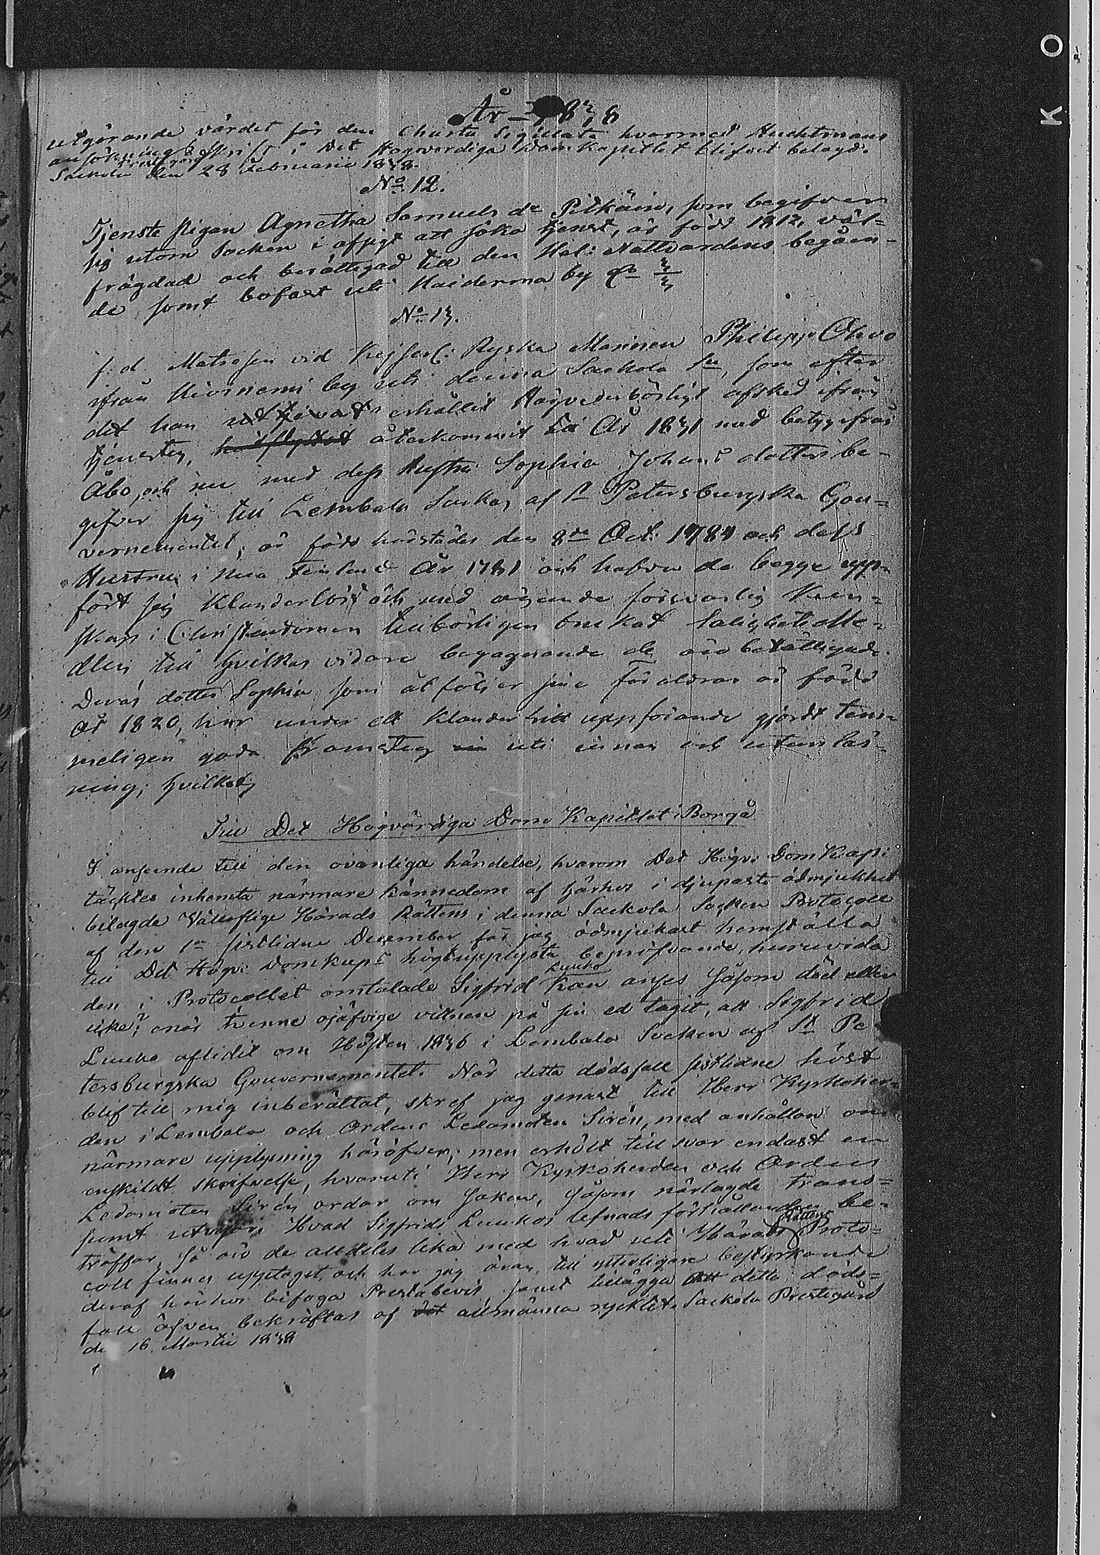 År 1838
utgörande värdet för den Charta Sigillata hvarmed Huchtmans
ansökningsskrift i Det Högvördiga Dom Kapitlet blifvit belagd.
Sackola den 28 Februarii 1838.
No 12.
Tjenste pigan Agnetha Samuels dr Pitkäin, som begifver
sig utom Socken i afsigt att söka tjenst, är född 1812, väl-
frägdad och berättigad till den Hel: Nattvardens begåen-
de samt bofast uti Haiderma by
No 13.
f:d. Matrosen vid Kejserl: Ryska Marinen Philipp Ohvo
ifrån Kivinemi by uti denna Sackola Sn, som efter
det han erhållit Högvederbörligt afsked ifrån
tjensten, återkommit År 1831 med betyg från
Åbo, och nu med dess Hustru Sophia Johans dotter be-
gifver sig till Lembala Socken af St Petersburgska Gou-
vernementet, är född härstädes den 8de Oct: 1784 och dess
Hustru i Nya Finland År 1781 och hafva de begge upp-
fört sig Klanderlöst och med ägande försvarlig Kun-
skap i Christendomen tillbörligen brukat Salighetsme-
dlen, till hvilkas vidare begagnande de äro berättigade.
Deras dotter Sophia som åtföljer sine föräldrar är född
År 1820, har under ett Klanderfritt uppförande gjordt tem-
meligen goda framsteg uti innan och utanläs-
ning, hvilket
Till Det Högvördiga Dom Kapitlet i Borgå
I anseende till den ovanliga händelse, hvarom Det Högv: Dom Kapi:
täcktes inhemta närmare kännedom af härhos i djupaste ödmjukhet
bilagde Välloflige Härads Rättens i denna Sackola Socken Protocoll
af den 1a sistlidne December får jag ödmjukast hemställa
till Det Högv: Domkap: högtupplysta bepröfvande, huruvida
den i Protocollet omtalade Sigfrid Luuko kan anses såsom död eller
icke? enär trenne ojäfvige vittnen på sin ed tagit, att Sigfrid
Luuko aflidit om Hösten 1836 i Lembala Socken af St Pe-
tersburgska Gouvernementet. När detta dödsfall sistlidne höst
blef till mig inberättat, skref jag genast till Herr Kyrkoher-
den i Lembala och Ordens Ledamoten Sirén, med anhållan om
närmare upplysning häröfver; men erhölt till svar endast en
enskildt skrifvelse, hvaruti Herr Kyrkoherden och Ordens
Ledamoten Sirén ordar om saken, såsom närlagde trans-
sumt utvisar. Hvad Sigfrids Luukos lefnads förhållanden be-
träffar, så äro de alldeles lika med hvad uti Härads Rättens Proto-
coll finnes upptaget, och har jag äran, till ytterligare bestyrkande
deraf härhos bifoga Prestabevis, samt tillägga att detta döds-
fall äfven bekräftas af allmänna ryktet. Sackola Prestegård
den 16. Martii 1838